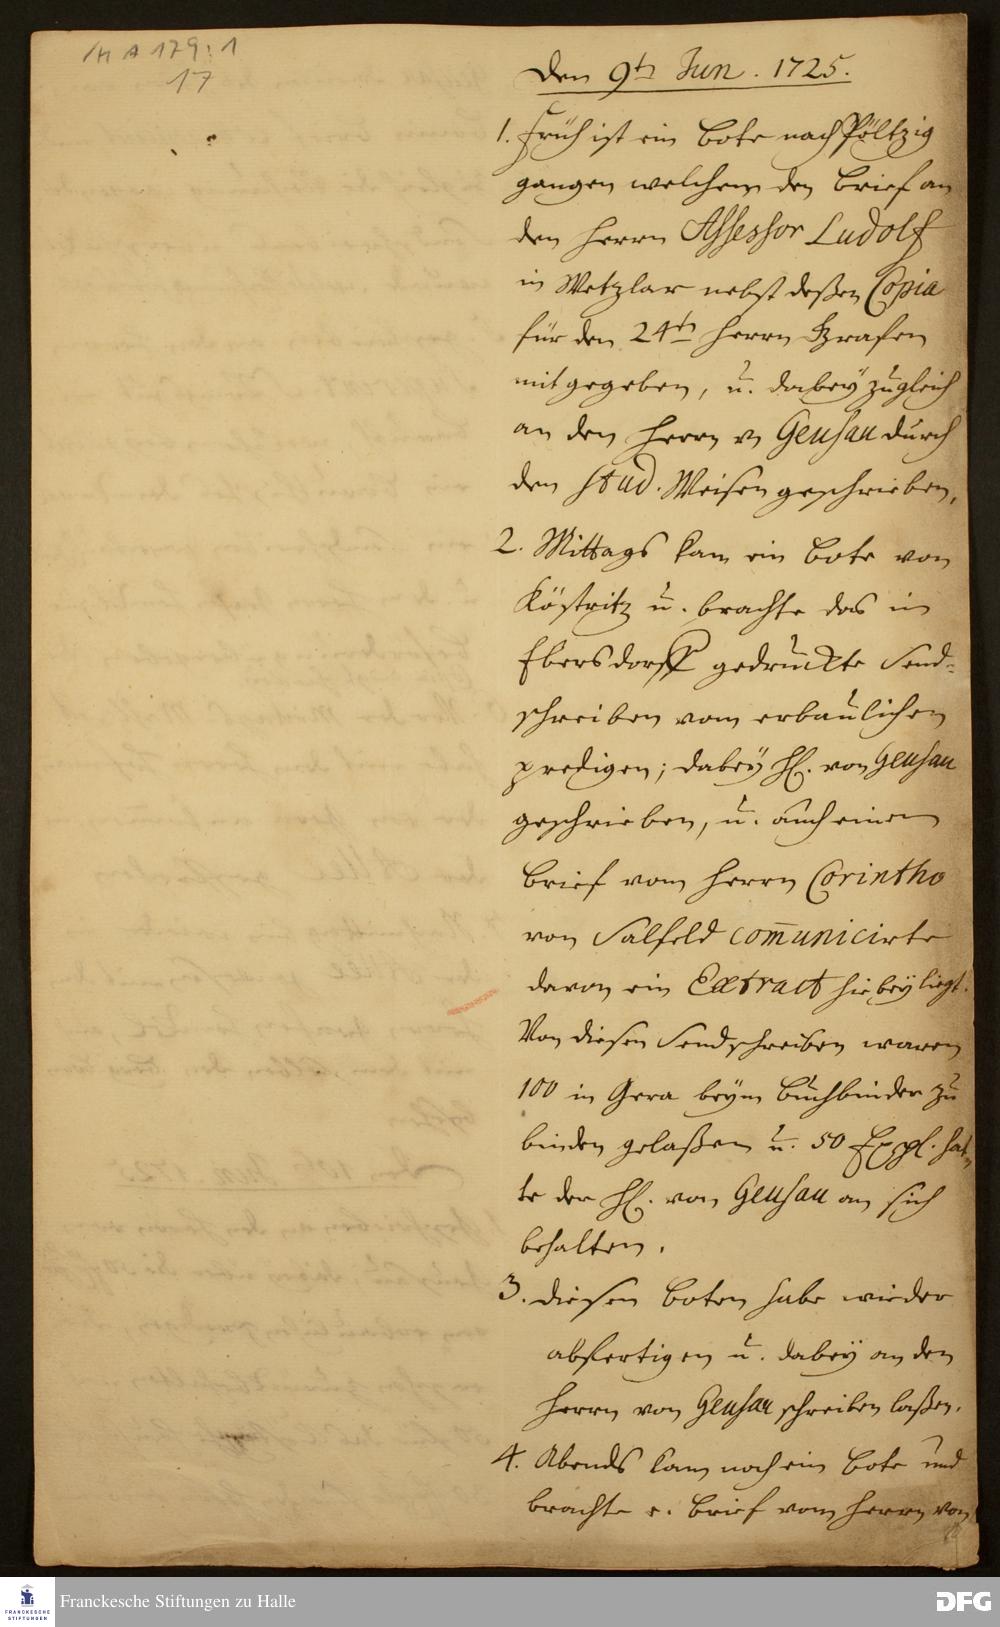 H A 179:1
17
Den 9th Jun. 1725.
1. Früh ist ein bote nach Pöltzig
gangen welchem den brief an
den Herrn Assessor Ludolf
in Wetzlar nebst deßen Copia
für den 24th Herrn Grafen
mit gegeben, u. dabey zugleich
an den Herrn v Geusau durch
den stud. Weisen geschrieben,
2. Mittags kam ein bote von
Köstritz u. brachte das in
Ebersdorff gedruckte Send-
schreiben vom erbaulichen
predigen; dabey H. von Geusau
geschrieben, u. auch einen
brief vom Herrn Corintho
von Salfeld com̄unicirte
davon ein Extract hiebey liegt.
Von diesen Sendschreiben waren
100 in Gera beym buchbinder zu
binden gelaßen u. 50 Expl. hat-
te der H. von Geusau an sich
behalten.
3. diesen boten habe wieder
abfertigen u. dabey an den
Herrn von Geusau schreiben laßen.
4. Abends kam noch ein bote und
brachte e. brief vom Herrn von
FRANCKESCHE STIFTUNGEN
Franckesche Stiftungen zu Halle
DFG